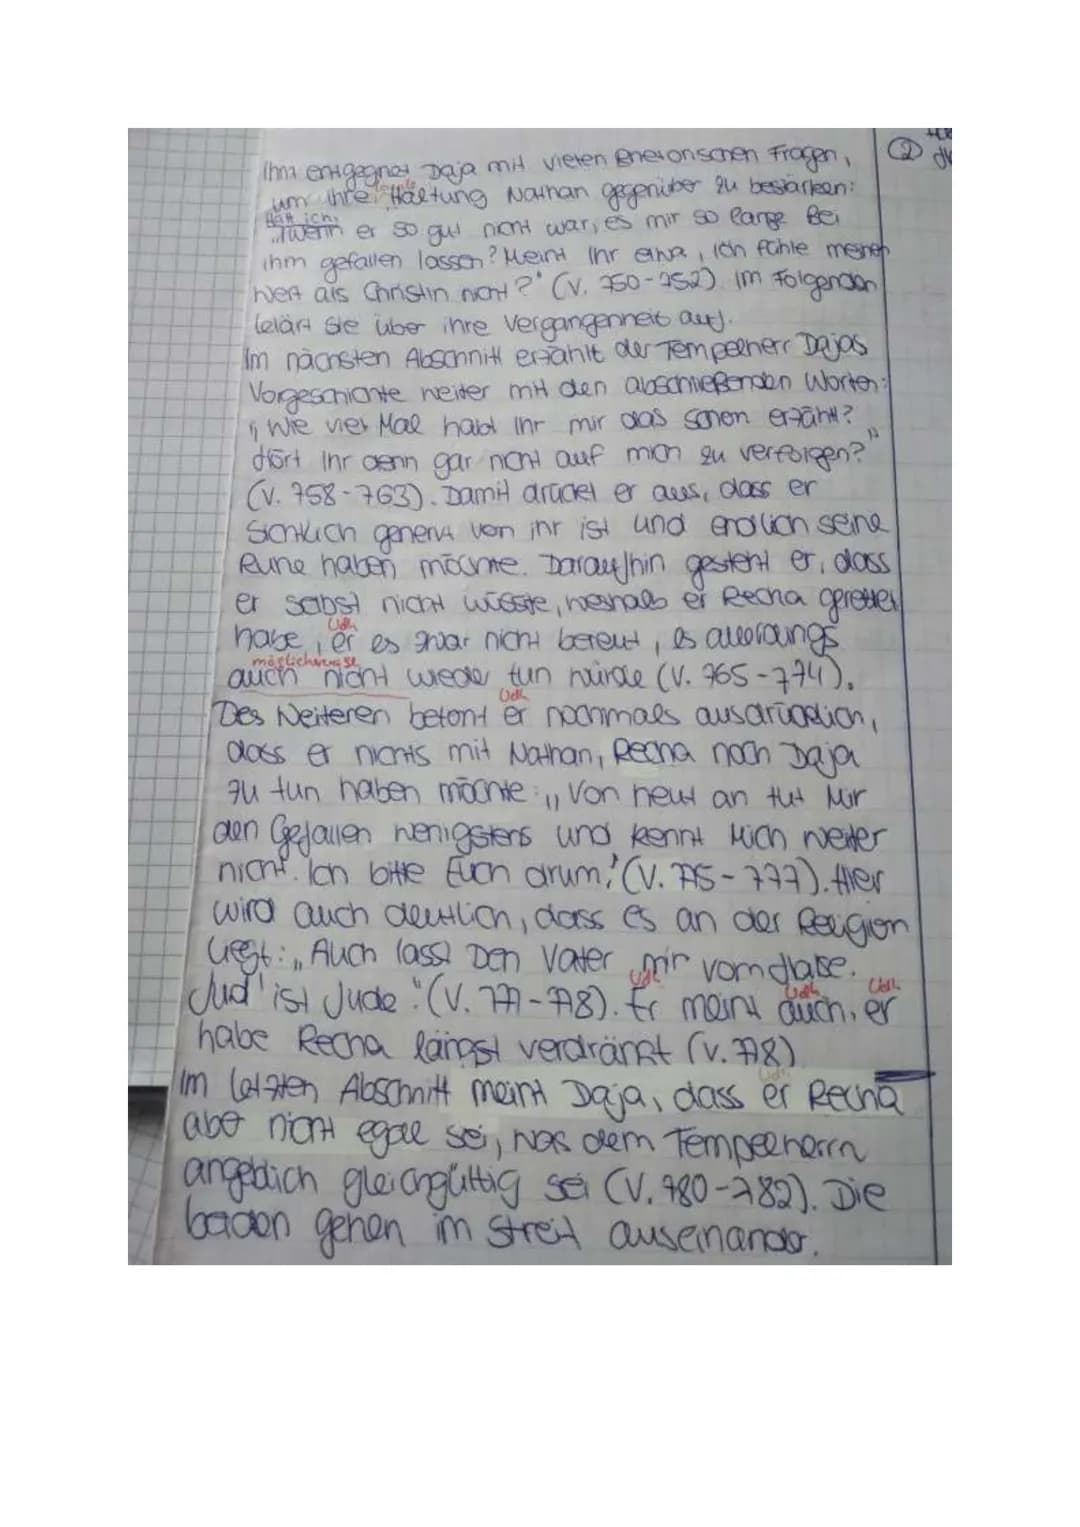 ②
Ihm entgegnet Daja mit vielen Rhetorischen Fragen,
um ihre Haltung Nathan gegenüber zu bestärken:
Hätt ich,
„wenn er so gut nicht wär, es mir so lange Bei
ihm gefallen lassen? Meint Ihr etwa, ich fühle meinen
Wert als Christin nicht?" (V. 750-752). Im Folgenden
klärt sie über ihre Vergangenheit auf.
Im nächsten Abschnitt erzählt der Tempelherr Dajas
Vorgeschichte weiter mit den abschließenden Worten:
„Wie viel Mal habt Ihr mir das schon erzählt?
Hört Ihr denn gar nicht auf mich zu verfolgen?"
(V. 758-763). Damit drückt er aus, dass er
sichtlich genervt von ihr ist und endlich seine
Ruhe haben möchte. Daraufhin gesteht er, dass
er selbst nicht wüsste, weshalb er Recha gerettet
Udh
habe, er es zwar nicht bereut, es allerdings
möglicherweise
auch nicht wieder tun würde (V. 765-774).
Udh
Des Weiteren betont er nochmals ausdrücklich,
dass er nichts mit Nathan, Recha noch Daja
zu tun haben möchte: „Von heut an tut Mir
den Gefallen wenigstens und kennt Mich weiter
nicht. Ich bitte Euch drum." (V. 775-777). Hier
wird auch deutlich, dass es an der Religion
liegt: „Auch lasst Den Vater mir vom Halse.
Udh Udh Udh
Jud' ist Jude." (V. 777-778). Er meint auch, er
habe Recha längst verdrängt (V. 778)
Udh
Im letzten Abschnitt meint Daja, dass er Recha
aber nicht egal sei, was dem Tempelherrn
angeblich gleichgültig sei (V. 780-782). Die
beiden gehen im Streit auseinander.